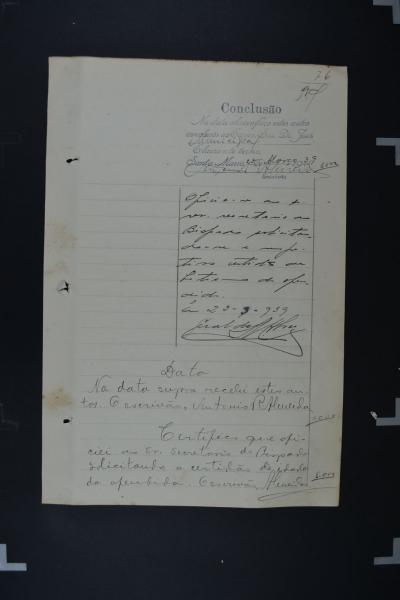 26
Conclusão
Na data supra faço estes autos
conclusos ao Exmo. Snr. Dr. Juiz
Municipal
Santa Maria, 22 Março 39
Escrivão
Oficie-se ao
snr. secretario do
Bispado solicitan-
do-se a respe-
tiva certidão de
batismo da ofen-
dida.
Em 23-3-939
Data
Na data supra recebi estes au-
tos. O escrivão, Antonio P. Almeida
Certifico que ofi-
ciei ao Sr. Secretario do Bispado
solicitando a certidão de idade
da ofendida. O escrivão, Almeida